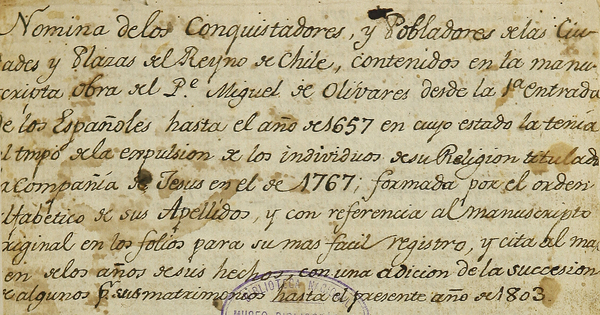 Nomina de los Conquistadores, y Pobladores de las Ciu-
dades y Plazas del Reyno de Chile, contenidos en la manu-
scripta obra del P.e Miguel de Olivares desde la 1a entrada
de los Españoles hasta el año de 1657 en cuyo estado la tenia
al tmpo de la expulsion de los individuos de su Religion titulada
la Compañia de Jesus en el de 1767; formada por el orden
alfabetico de sus Apellidos, y con referencia al manuscripto
original en los folios para su mas facil registro, y cita al mar-
gen de los años de sus hechos, con una adicion de la succesion
de algunos pr sus matrimonios hasta el presente año de 1803.
BIBLIOTECA NACIONAL